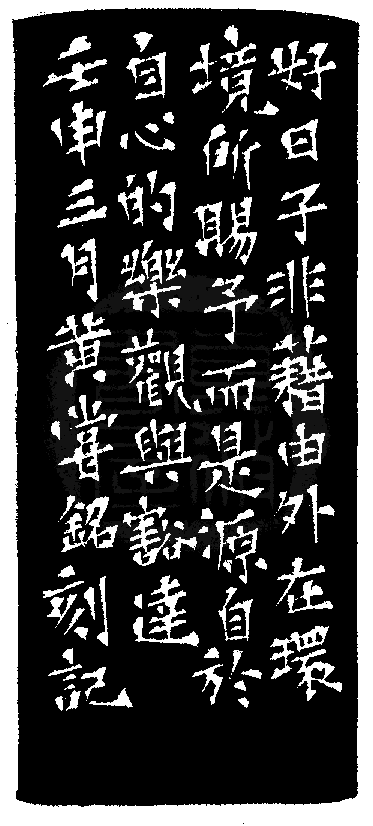 好日子非藉由外在環
境所賜予而是源自於
自心的樂觀與豁達
壬申三月黃嘗銘刻記